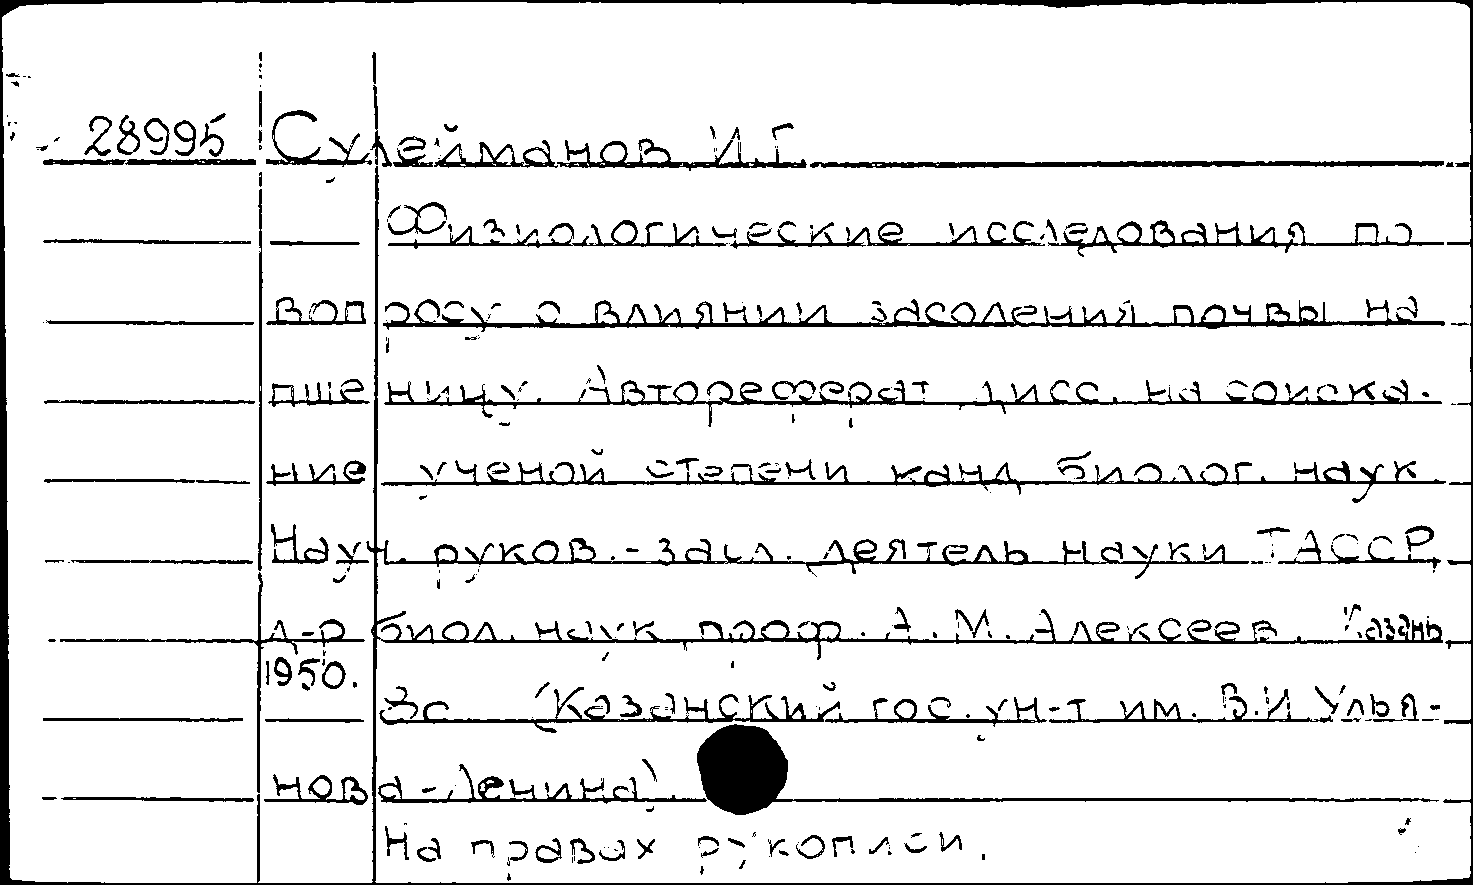 28995 Сулейманов И.Г.
Физиологические исследования по
вопросу о влиянии засоления почвы на
пшеницу. Автореферат дисс. на соиска-
ние ученой степени канд биолог. наук.
Науч. руков.- засл. деятель науки ТАССР,
д-р биол. наук проф. А.М. Алексеев. Казань,
1950.
3с (Казанский гос. ун-т им. В.И Улья-
нова-Ленина).
На правах рукописи.